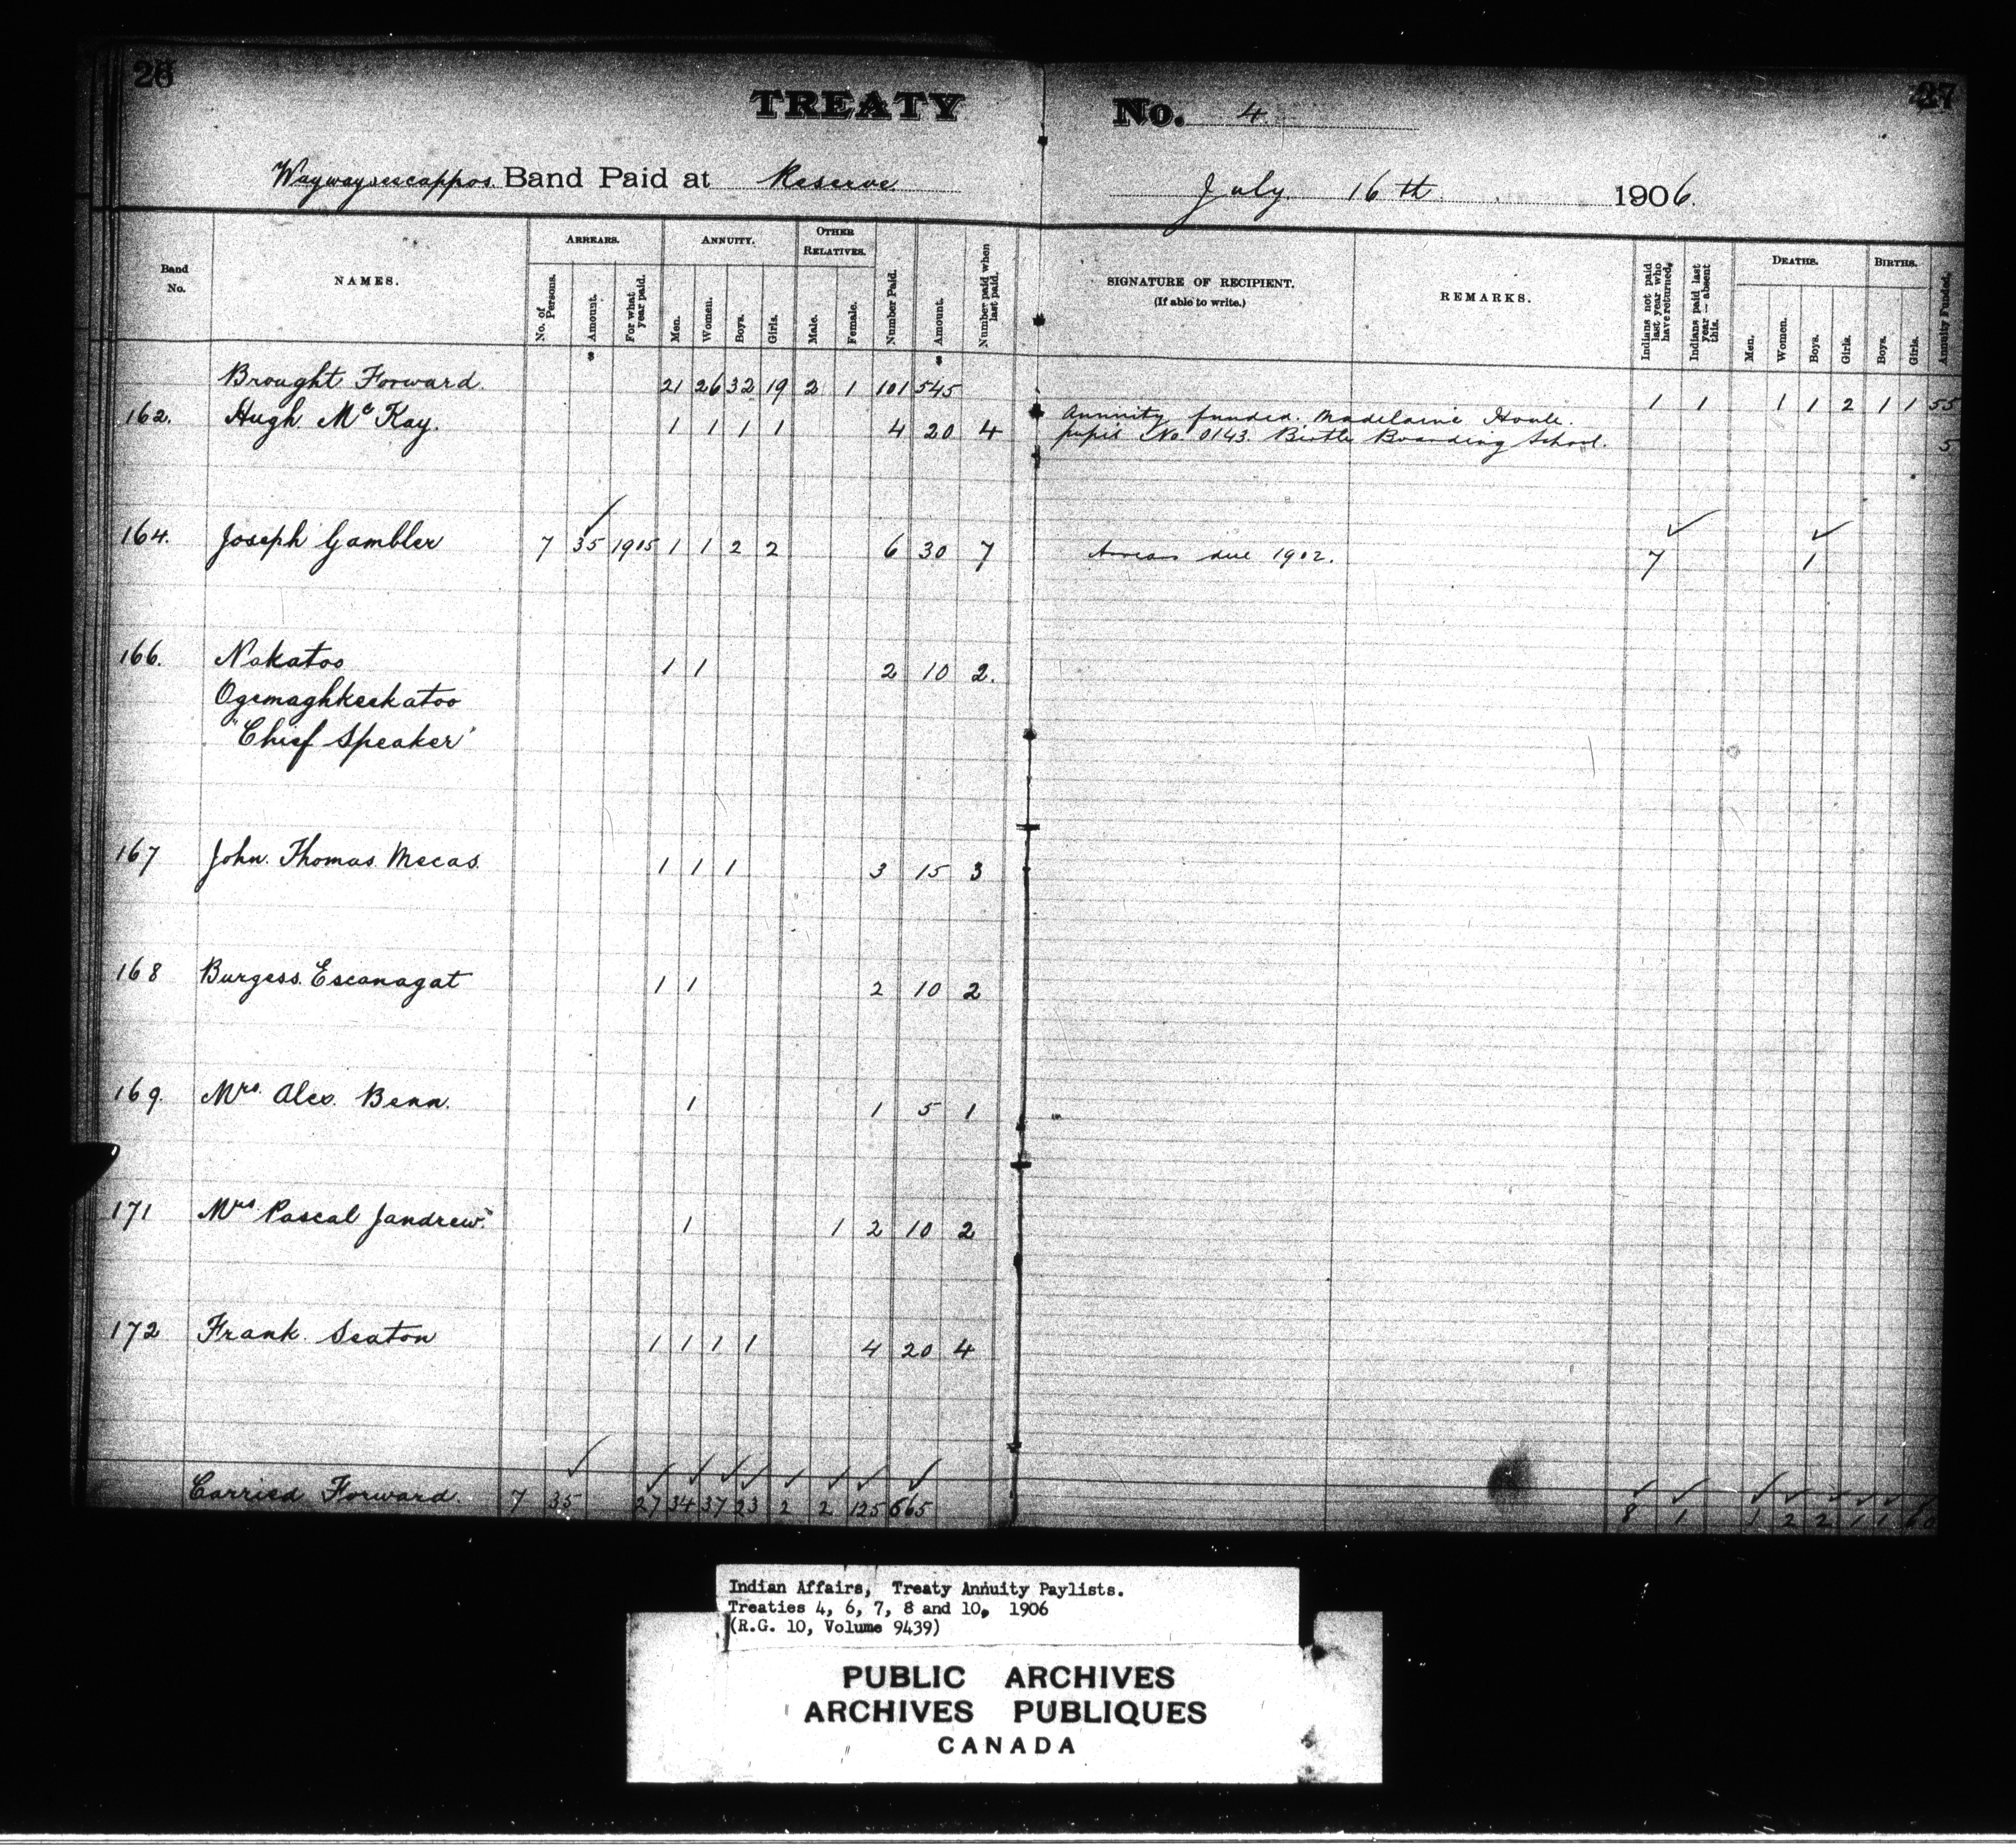 26
27
TREATY No. 4
Waywayseecappos Band Paid at Reserve July 16th 1906.
Band No.
NAMES.
ARREARS.
No. of Persons.
Amount.
For what year paid.
ANNUITY.
Men.
Women.
Boys.
Girls.
OTHER RELATIVES.
Male.
Female.
Number Paid.
Amount.
Number paid when last paid.
SIGNATURE OF RECIPIENT.
(If able to write.)
REMARKS.
Indians not paid last year who have returned.
Indians paid last year — absent this.
DEATHS.
Men.
Women.
Boys.
Girls.
BIRTHS.
Boys.
Girls.
Annuity Funded.
$ $
Brought Forward. 21 26 32 19 2 1 101 545 1 1 1 1 2 1 1 55
162. Hugh McKay. 1 1 1 1 4 20 4 Annuity funded. Madelaine Houle.
pupil No. 0143. Birtle Boarding School. 5
164. Joseph Gambler 7 35 1905 1 1 2 2 6 30 7 Arrears due 1902. 7 1
166. Nakatoo 1 1 2 10 2.
Ogemaghkeekatoo
"Chief Speaker"
167 John. Thomas. Mecas. 1 1 1 3 15 3
168 Burgess. Escanagat 1 1 2 10 2
169. Mrs. Alex. Benn. 1 1 5 1
171 Mrs Pascal Jandrew. 1 1 2 10 2
172 Frank. Seaton 1 1 1 1 4 20 4
Carried Forward. 7 35 27 34 37 23 2 2 125 665 8 1 1 2 2 1 1 60
Indian Affairs, Treaty Annuity Paylists.
Treaties 4, 6, 7, 8 and 10, 1906
(R.G. 10, Volume 9439)
PUBLIC ARCHIVES
ARCHIVES PUBLIQUES
CANADA